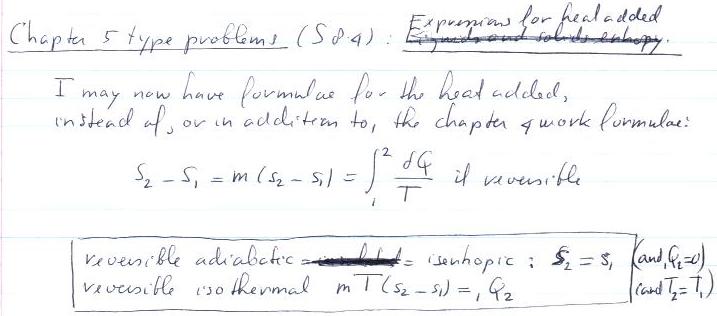 Chapter 5 type problems (S 8.4) : Expressions for heat added
Liquids and solids enthopy.
I may now have formulae for the heat added,
instead of, or in addition to, the chapter 4 work formulae:
S₂ - S₁ = m (s₂ - s₁) = ∫₁² δQ/T if reversible
reversible adiabatic = isenthopic : S₂ = S₁ (and ₁Q₂=0)
reversible isothermal m T (s₂ - s₁) = ₁Q₂ (and T₂ = T₁)